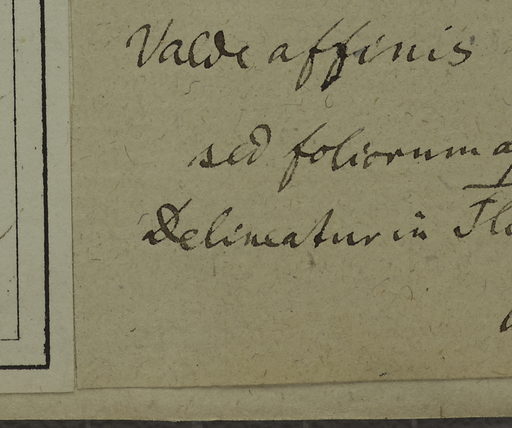 Valde affinis
sed foliorum
Delineatur in